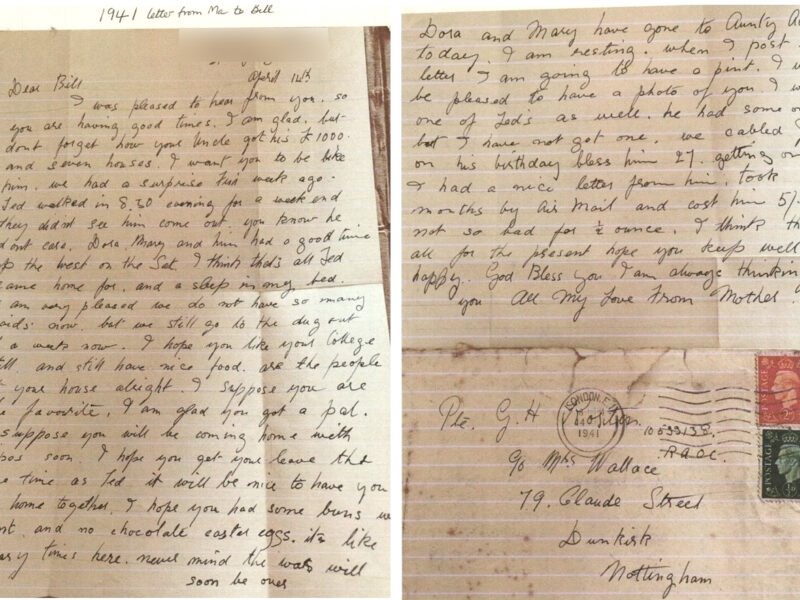 1941 letter from Ma to Bill
April 14th
Dear Bill
I was pleased to hear from you. so
you are having good times. I am glad, but
dont forget how your Uncle got his £1000.
and seven houses. I want you to be like
him, we had a surprise this week ago.
Ted walked in 8.30 evening for a week end
they didnt see him come out, you know he
dont care. Dora, Mary and him had a good time
up the west on the Sat. I think thats all Ted
came home for, and a sleep in my bed.
am very pleased we do not have so many
raids now. but we still go to the dug out
a weeks now. I hope you like your College
and still have nice food. are the people
your house alright. I suppose you are
favorite, I am glad you got a pal.
suppose you will be coming home with
soon. I hope you get your leave the
time as Ted it will be nice to have you
home together. I hope you had some buns we
and no chocolate easter eggs. its like
times here. never mind the war will
soon be over
Dora and Mary have gone to Aunty
today. I am resting. when I post
letter I am going to have a pint. I
be pleased to have a photo of you. I
one of Ted's as well. he had some
but I have not got one. we cabled
on his birthday bless him 27. getting
I had a nice letter from him, took
months by Air Mail and cost him 5/-
not so bad for ½ ounce. I think
all for the present hope you keep well
happy. God Bless you I am always thinking
you All My Love From Mother.
LONDON. E.
1941
Pte. G. H
R.A.O.C.
POSTAGE
c/o Mrs Wallace
79. Claude Street
POSTAGE
Dunkirk
Nottingham